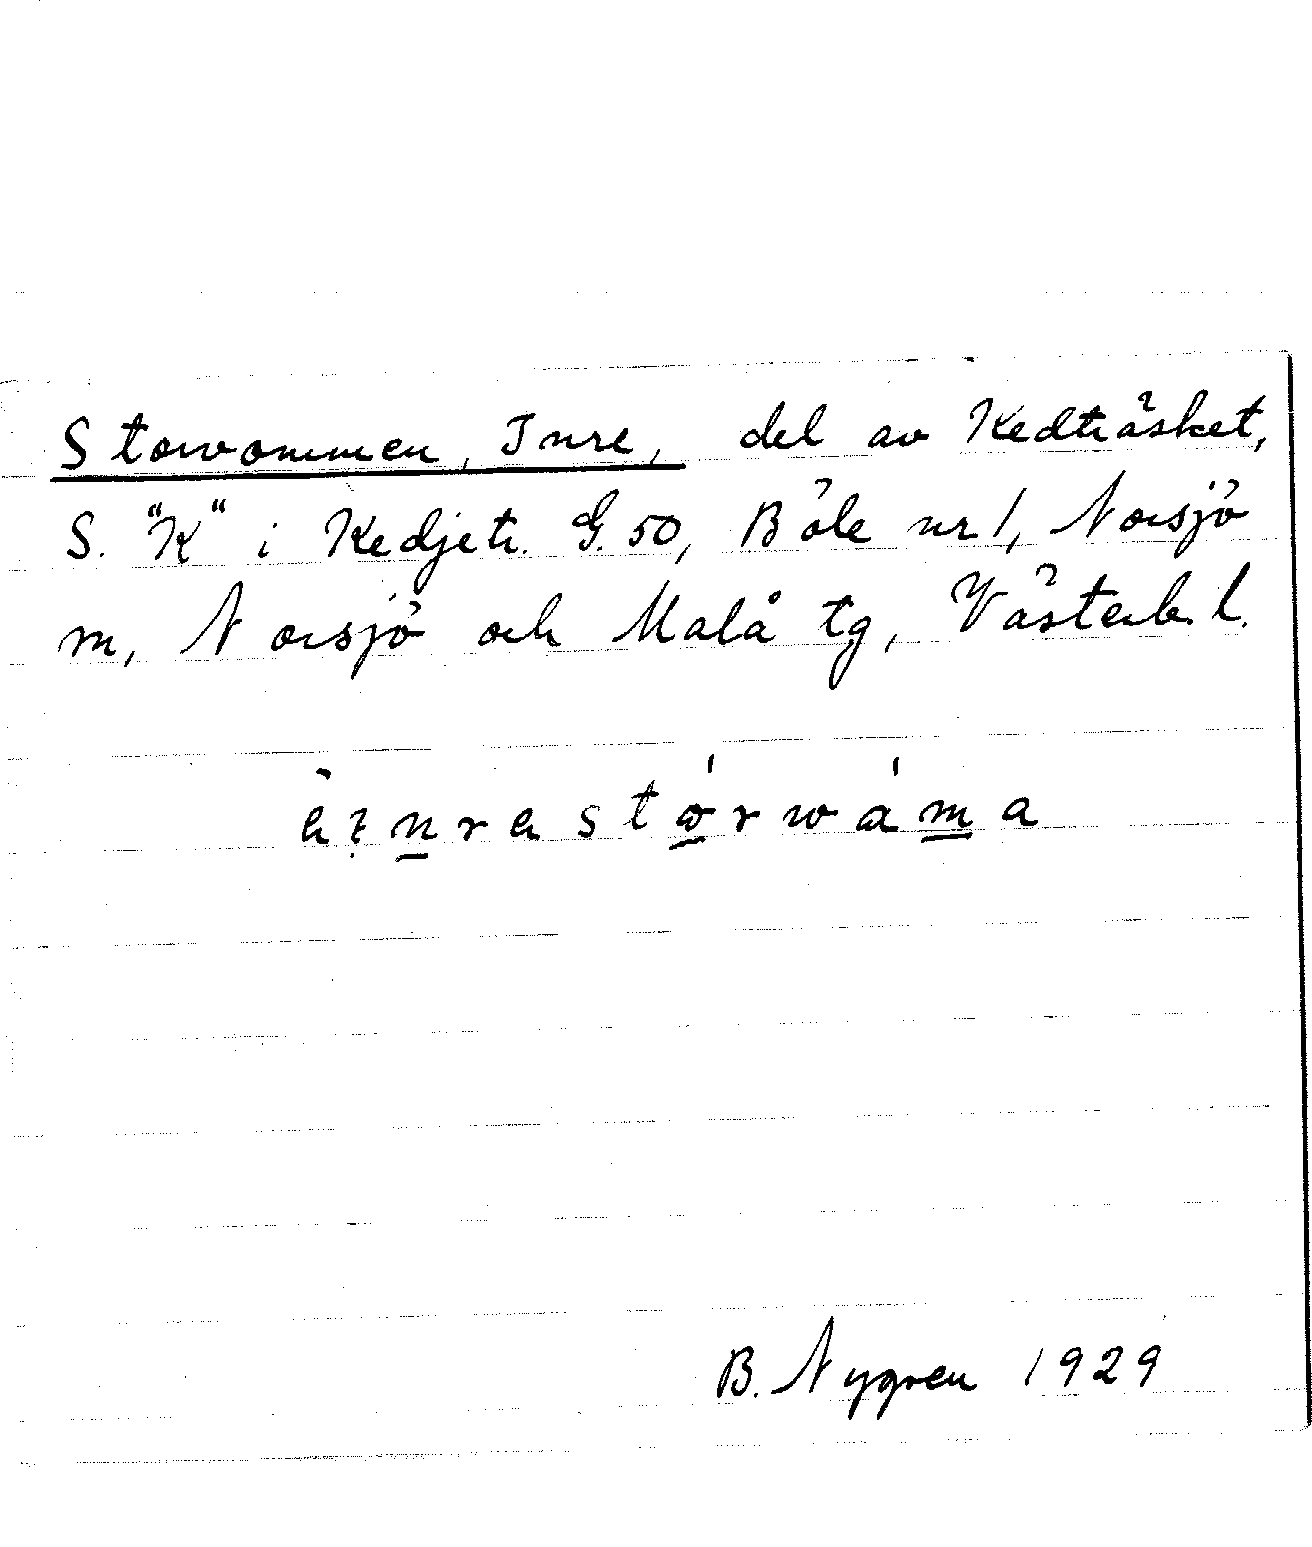 Storvommen, Inre, del av Kedträsket,
S. "K" i Kedjetr. G. 50, Böle nr 1, Norsjö
m, Norsjö och Malå tg, Västerb. l.
B. Nygren 1929